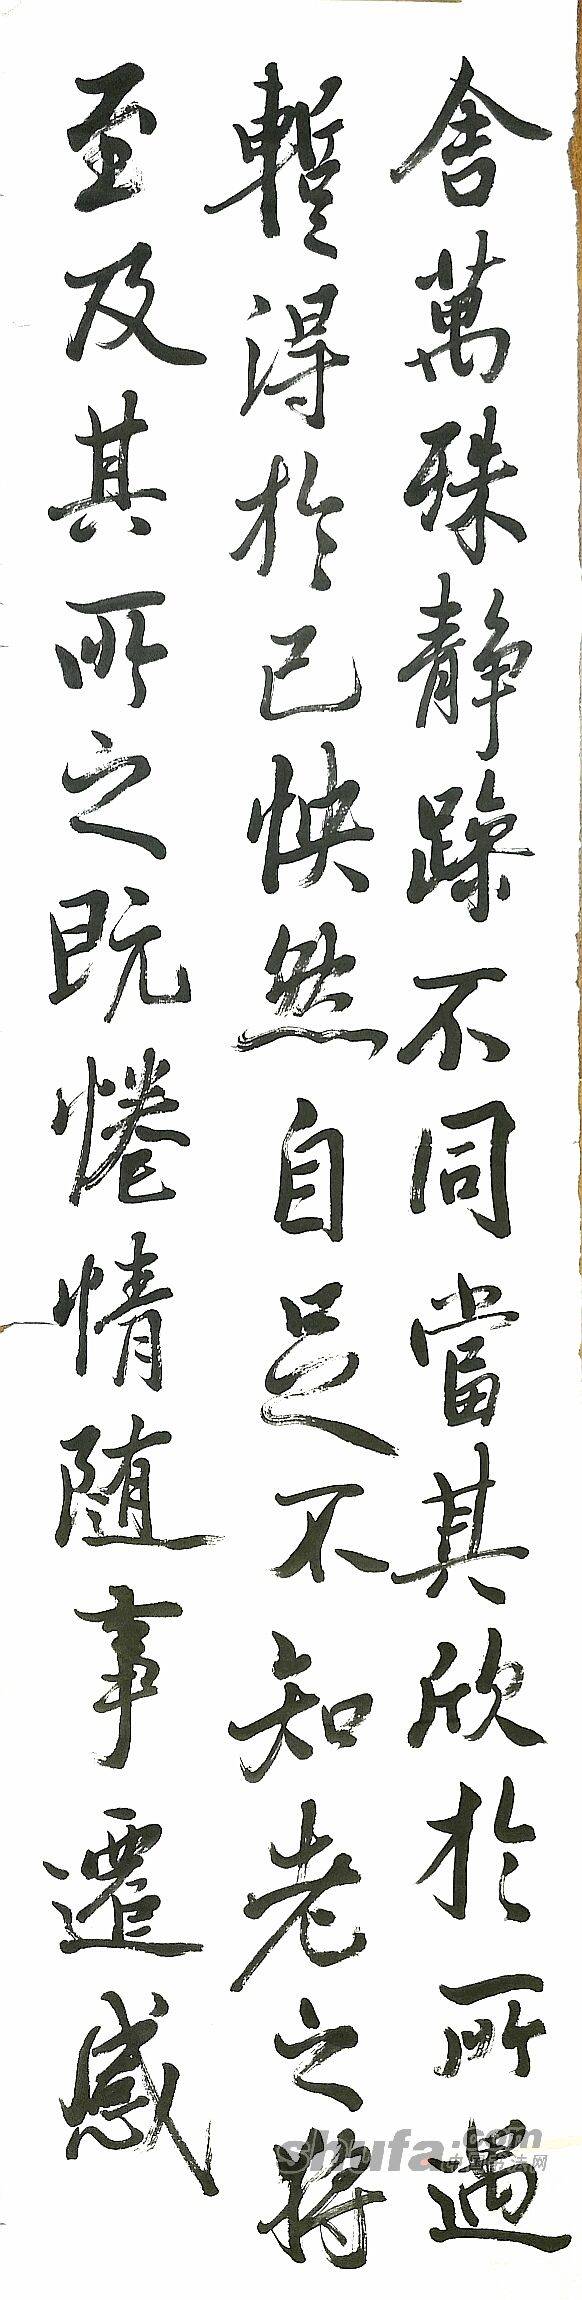 舍萬殊静躁不同當其欣於所遇
蹔得於己怏然自足不知老之將
至及其所之既惓情随事遷感
shufa.com
中国书法网